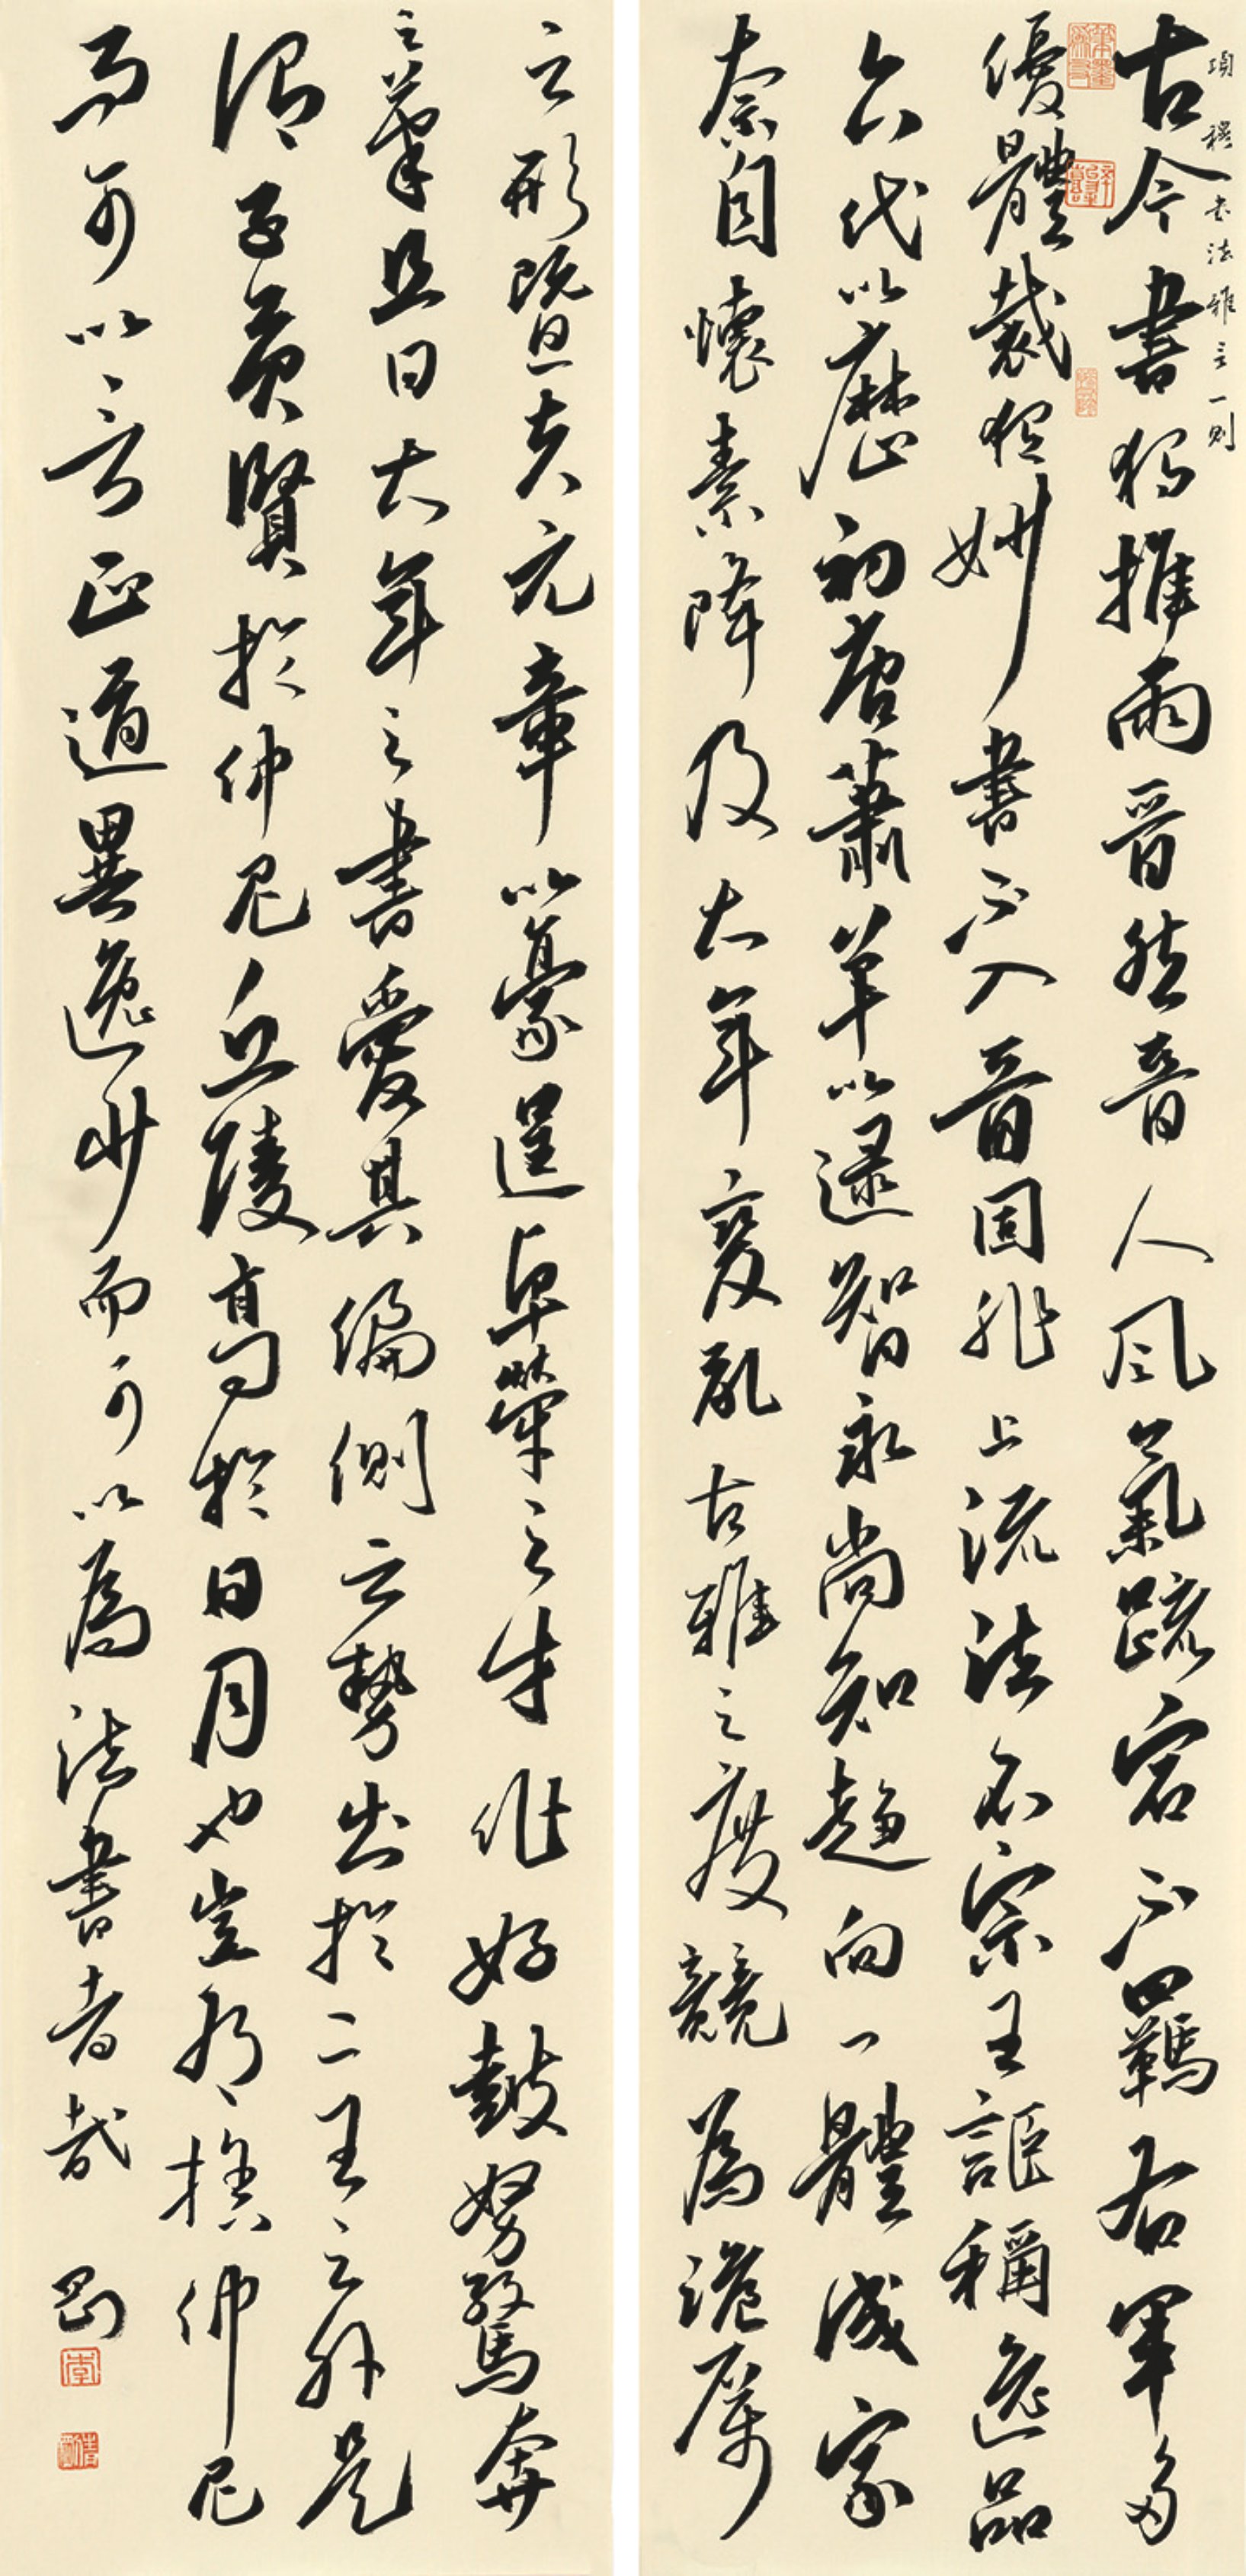 項穆書法雅言一則
古今書獨推兩晉然晉人風氣疏宕不羈右軍多
優體裁獨妙書不入晉固非上流法不宗王詎稱逸品
六代以歷初唐蕭羊以逮智永尚知趨向一體成家
奈自懷素降及大年變亂古雅之度競為詭厲
之形暨夫元章以豪逞卓犖之才作好鼓努驚奔
之筆且曰大年之書愛其偏側之勢出於二王之外是
謂子貢賢於仲尼丘陵高於日月也豈有捨仲尼
而可以言正道異逸少而可以為法書者哉
剛
李